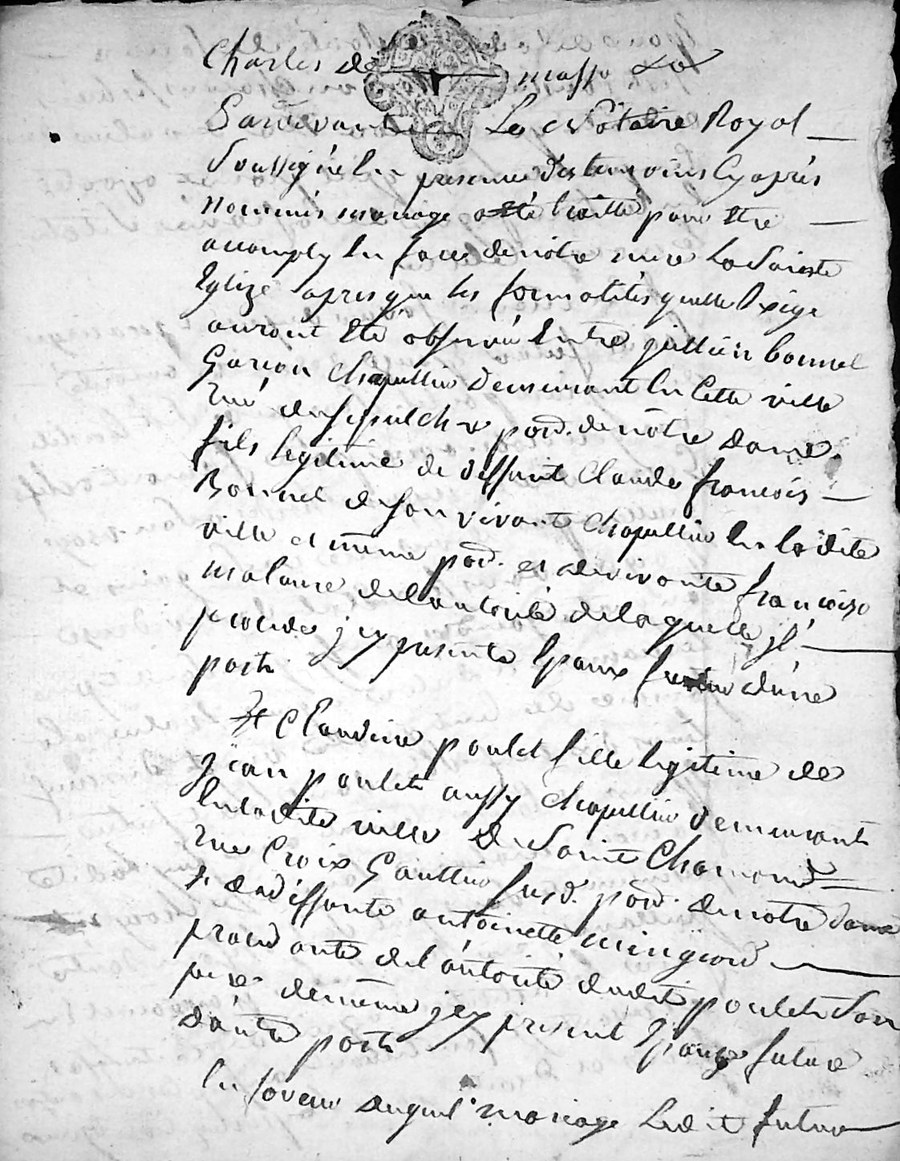 Charles de masso
Pardevant Le Notaire Royal
Soussigné En presence des temoins Cy aprés
nommés mariage a été traitté pour Etre
accomply En face de nôtre mere La Sainte
Eglize apres que les formalités quelle Exige
auront Eté observé Entre Bonnel
Garcon Chapellier demeurant En Cette ville
rué du sepulchre parr. de nôtre dame
fils legitime de deffunt Claude francois
Bonnel de son vivant Chapellier En la dite
ville et même parr. et de vivante francoise
malaure de l'autorité de laquelle jl
procede jcy presente Epoux futur d'une
part.
Et Claudine poulet fille legitime de
jean poulet aussy Chapellier demeurant
En ladite ville de Saint Chamond
rue Croix Gauthier susd. parr. de notre dame
& de deffunte antoinette
procedante de l'autorité dudit poulet son
pere de même jcy présent Epouze future
d'autre part.
En faveur duquel mariage Ledit futur